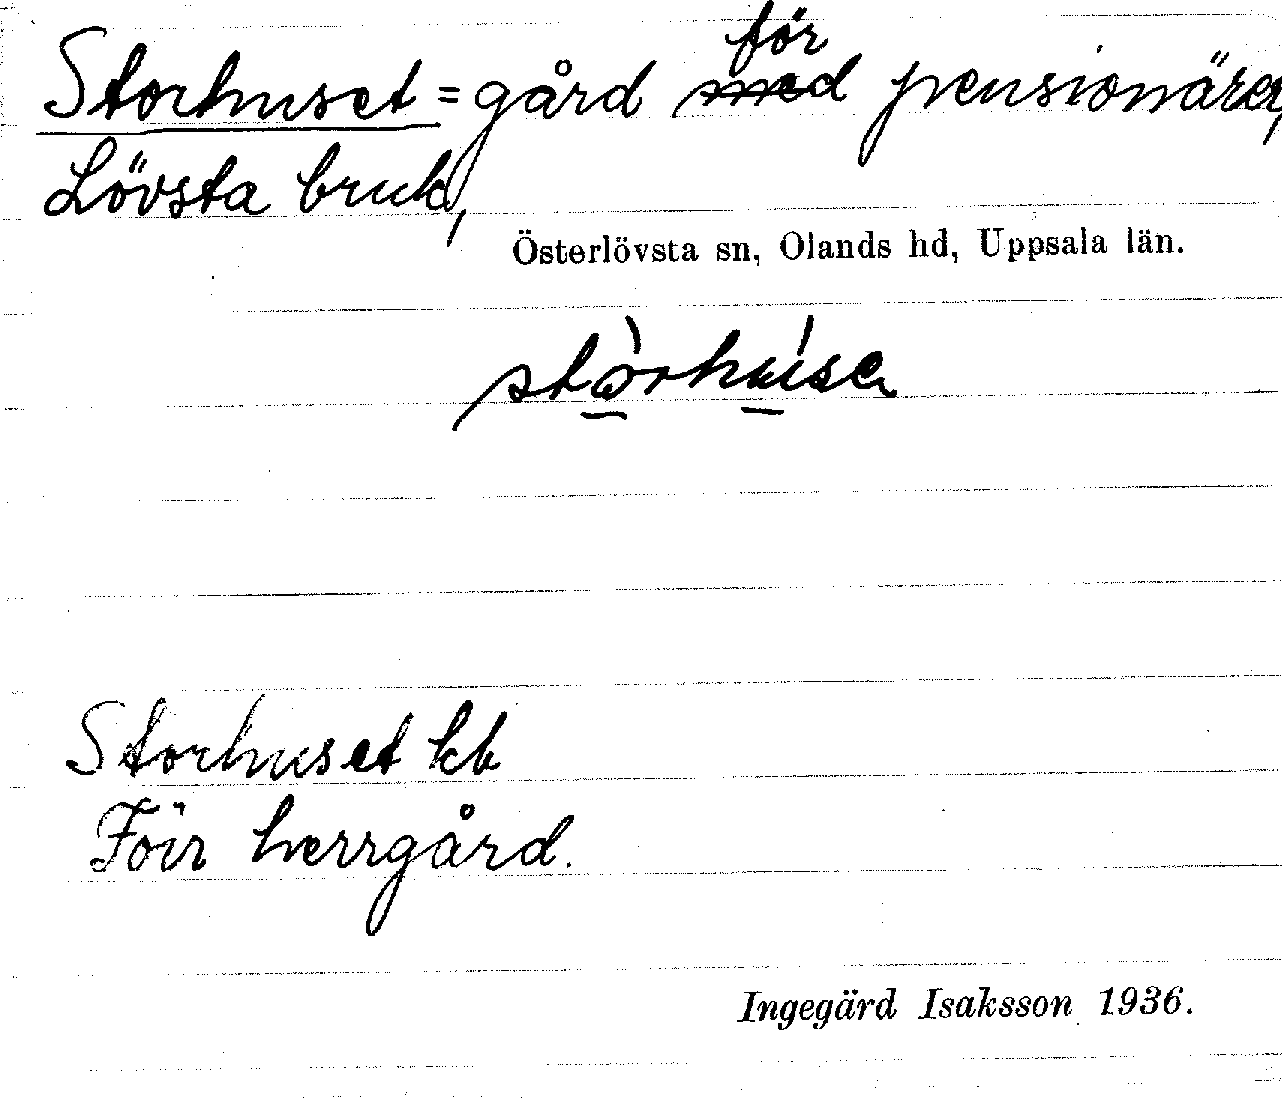 Storhuset = gård för pensionärer,
Lövsta bruk,
Österlövsta sn, Olands hd, Uppsala län.
Storhuset kb
Förr herrgård.
Ingegärd Isaksson 1936.